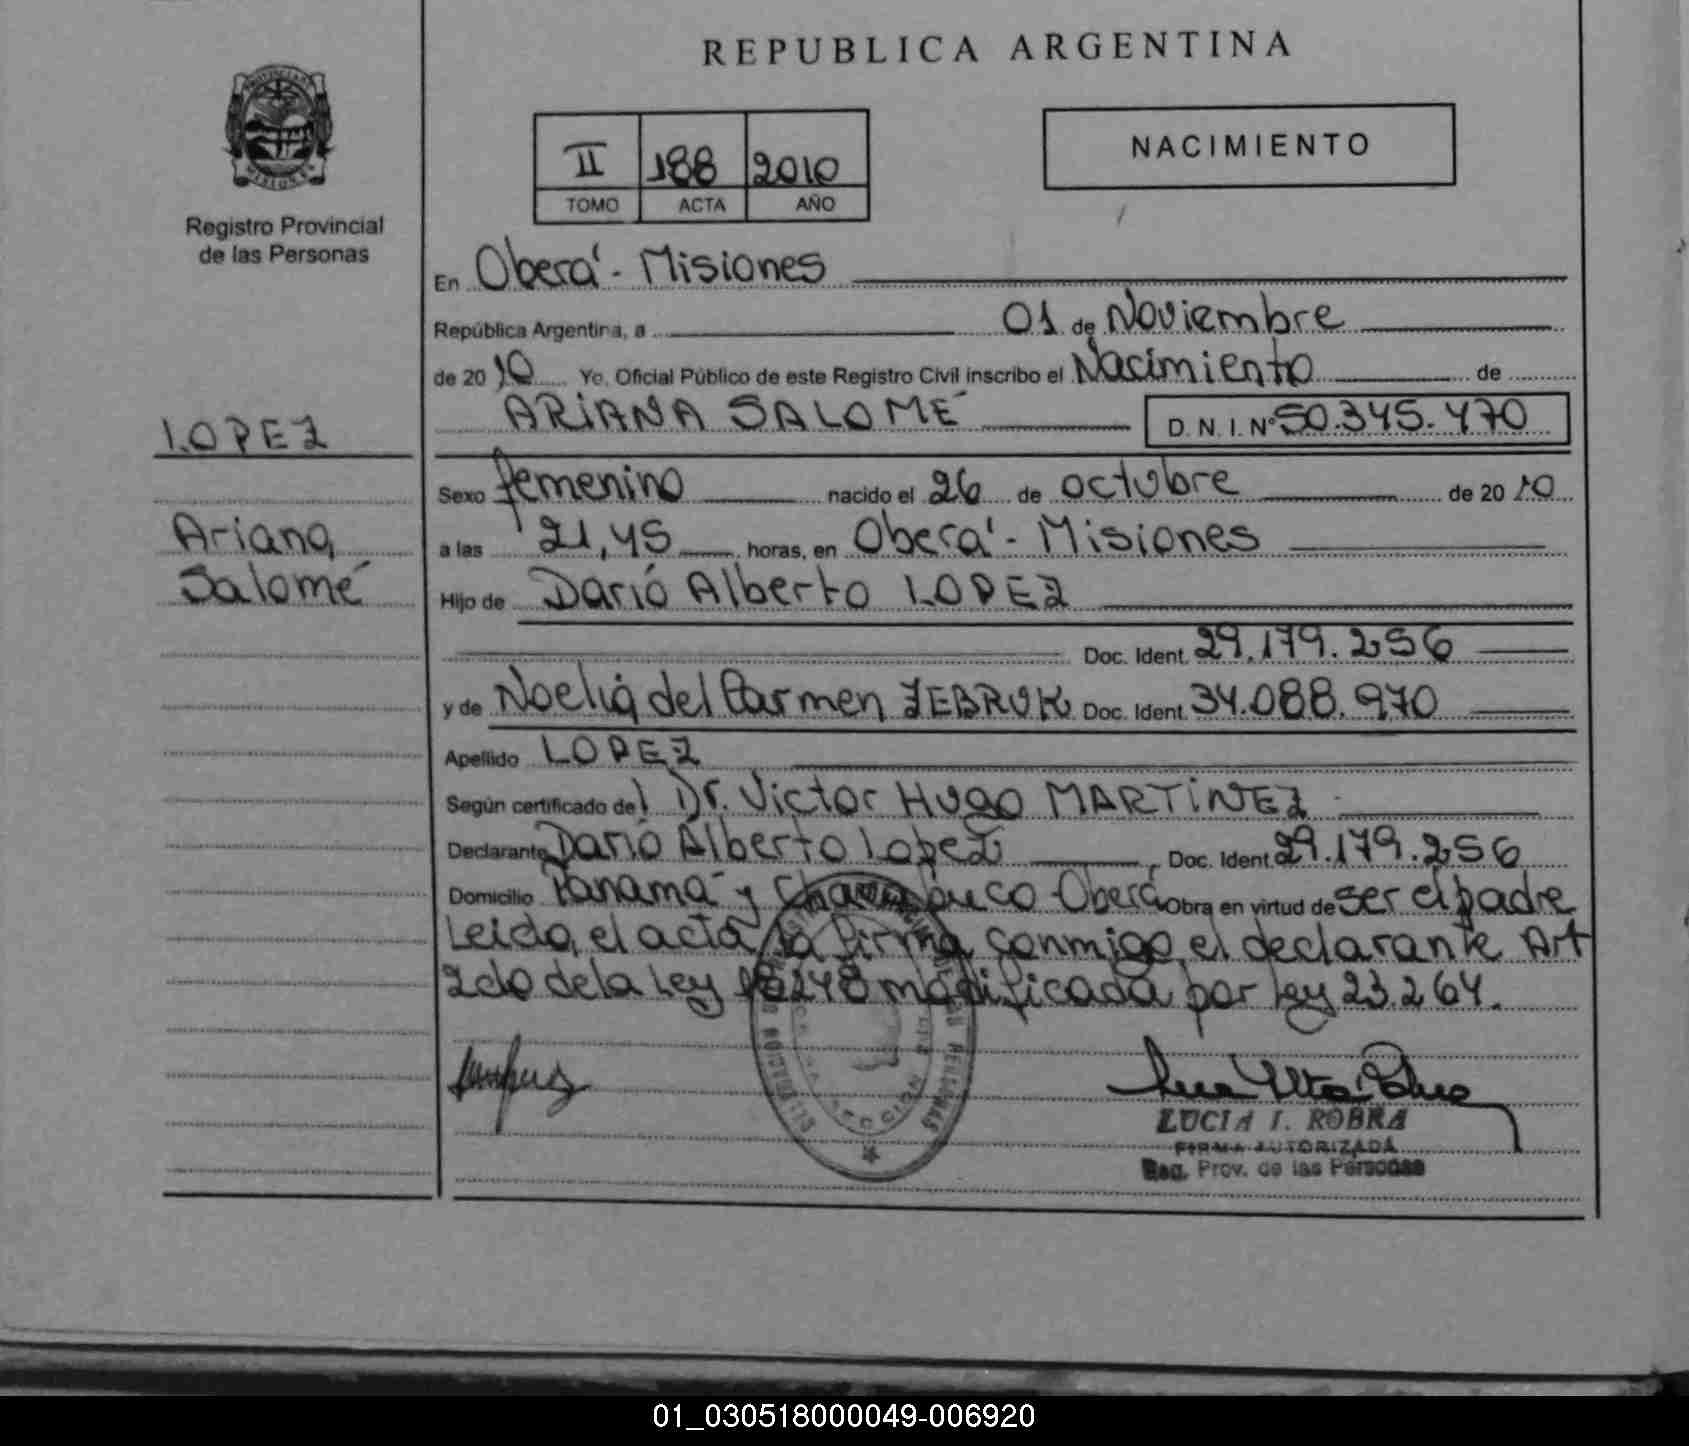 REPUBLICA ARGENTINA
II 188 2010
TOMO ACTA AÑO
NACIMIENTO
MISIONES
Registro Provincial
de las Personas
En Oberá - Misiones
República Argentina, a 01 de Noviembre
de 2010 Yo, Oficial Público de este Registro Civil inscribo el Nacimiento de
ARIANA SALOMÉ D. N. I. N° 50.345.470
LOPEZ
Sexo femenino nacido el 26 de octubre de 2010
Ariana
a las 21,45 horas, en Oberá - Misiones
Salomé
Hijo de Darió Alberto LOPEZ
Doc. Ident. 29.179.256
y de Noelia del Carmen ZEBRUK Doc. Ident. 34.088.970
Apellido LOPEZ
Según certificado del Dr. Victor Hugo MARTINEZ
Declarante Darió Alberto Lopez, Doc. Ident. 29.179.256
Domicilio Panamá y Chacabuco - Oberá Obra en virtud de ser el padre
Leida, el acta la firma conmigo, el declarante Art
2do de la Ley 18248 modificada por Ley 23.264.
LUCIA I. ROBRA
FIRMA AUTORIZADA
Reg. Prov. de las Personas
01_030518000049-006920